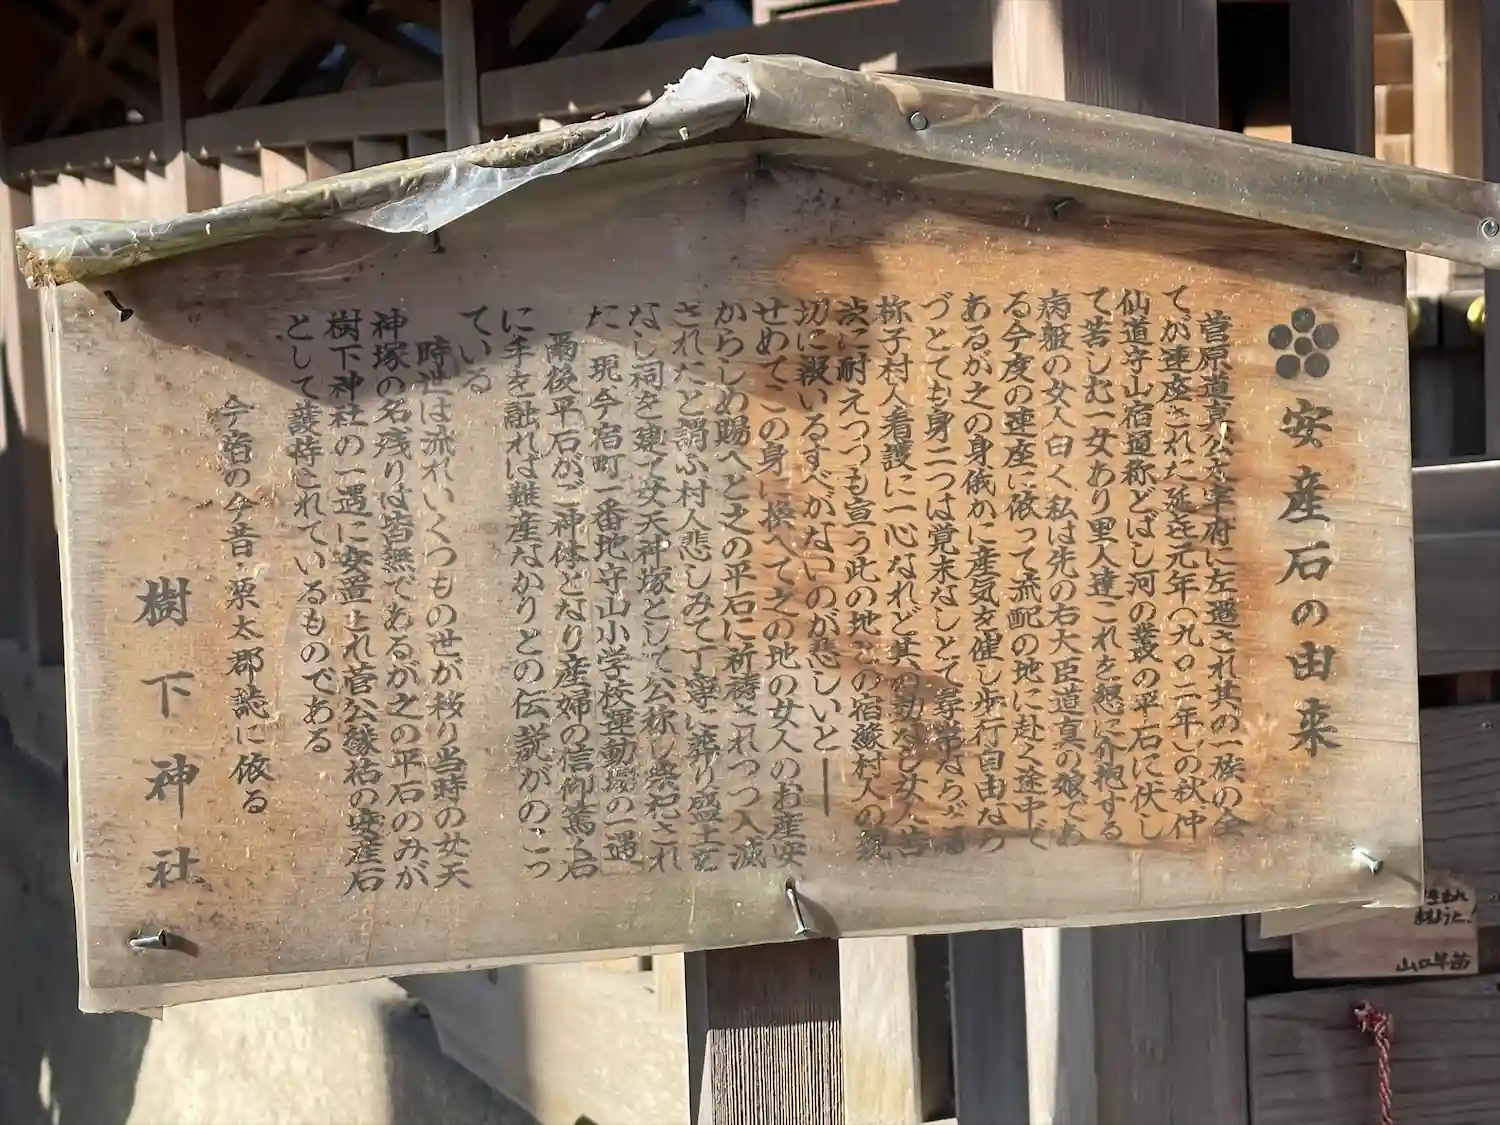 安産石の由来
菅原道真公太宰府に左遷され其の一族の全
てが連座された延喜元年(九〇二年)の秋仲
仙道守山宿通称どばし河の叢の平石に伏し
て苦しむ一女あり里人達これを懇に介抱する
病躯の女人曰く私は先の右大臣道真の娘であ
る今度の連座に依って流配の地に赴く途中で
あるが之の身俄かに産気を催し歩行自由なら
づとても身二つは覚束なしとて尋常ならざる
祢子村人看護に一心なれど其の効なし女人苦
渋に耐えつつも宣う此の地この宿蘇村人の親
切に報いるすべがないのが悲しいと――
せめてこの身に換へて之の地の女人のお産安
からしめ賜へと之の平石に祈祷されつつ入滅
されたと謂ふ村人悲しみて丁寧に葬り盛土を
なし祠を建て女天神塚として公称し祭祀され
た 現今宿町一番地守山小学校運動場の一遇」
爾後平石がご神体となり産婦の信仰篤く石
に手を融れば難産なかりとの伝説がのこっ
ている
時世は流れいくつもの世が移り当時の女天
神塚の名残りは皆無であるが之の平石のみが
樹下神社の一遇に安置され菅公縁祐の安産石
として護持されているものである
今昔の今昔・栗太郡誌に依る
樹下神社
山口早苗